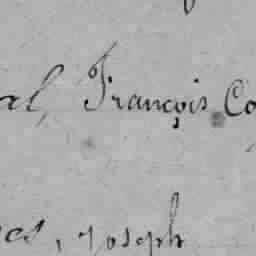 al, François Co
es, joseph